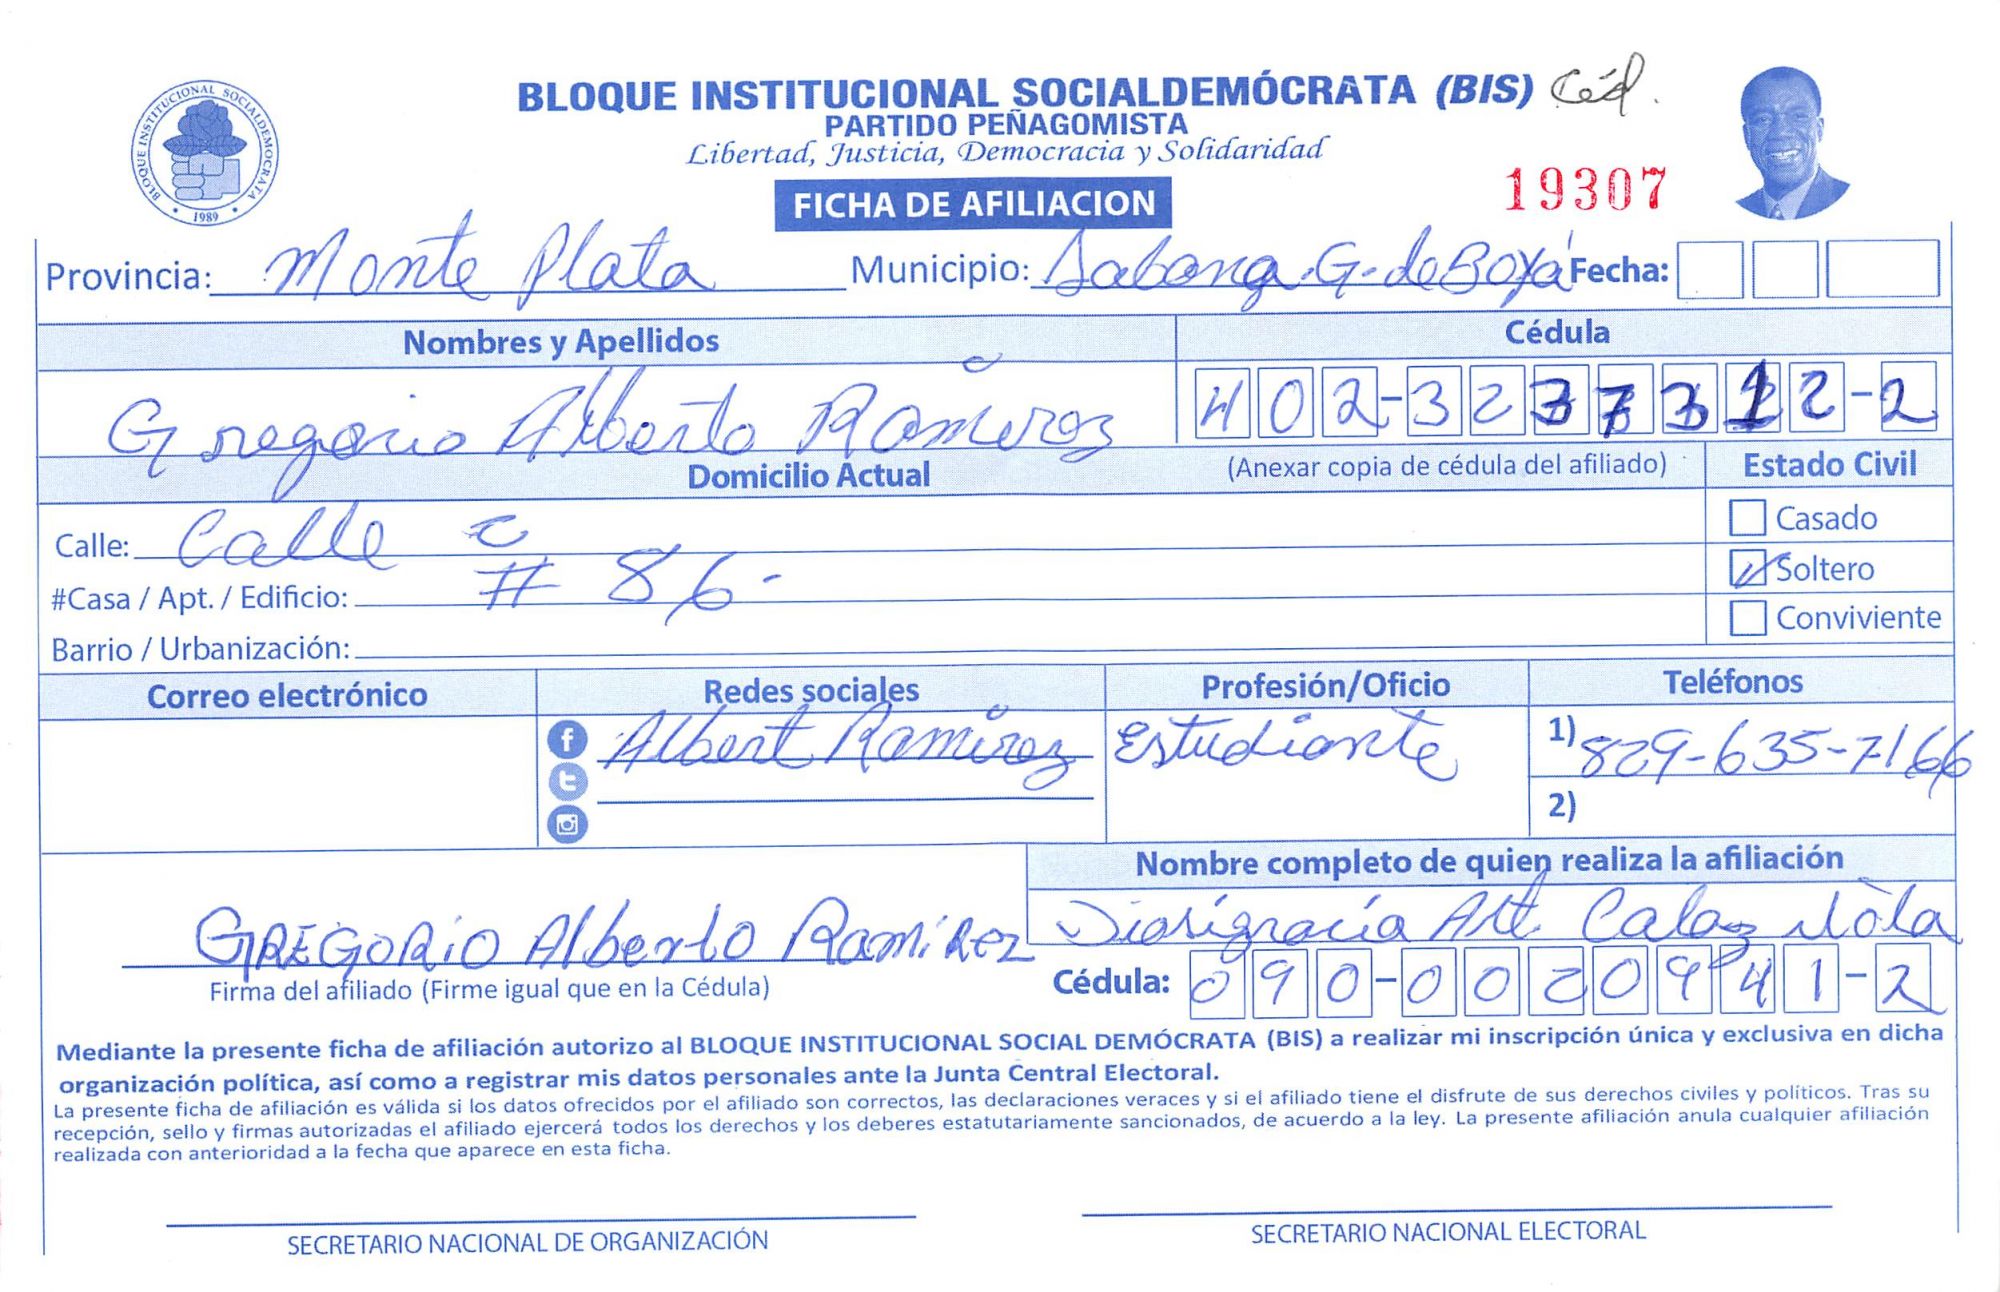 BLOQUE INSTITUCIONAL SOCIALDEMÓCRATA (BIS) Céd.
PARTIDO PEÑAGOMISTA
Libertad, Justicia, Democracia y Solidaridad
BLOQUE INSTITUCIONAL SOCIALDEMOCRATA
1989
19307
FICHA DE AFILIACION
Provincia: Monte Plata Municipio: Sabana G. de Boyá Fecha:
Nombres y Apellidos Cédula
Gregorio Alberto Ramirez 402-3237312-2
Domicilio Actual (Anexar copia de cédula del afiliado) Estado Civil
Calle: Calle C Casado
#Casa / Apt. / Edificio: # 86- Soltero
Barrio / Urbanización: Conviviente
Correo electrónico Redes sociales Profesión/Oficio Teléfonos
Albert Ramirez Estudiante 1) 829-635-7166
2)
Nombre completo de quien realiza la afiliación
GREGORIO Alberto Ramirez Diosigracía Alt.
Firma del afiliado (Firme igual que en la Cédula) Cédula: 090-0020941-2
Mediante la presente ficha de afiliación autorizo al BLOQUE INSTITUCIONAL SOCIAL DEMÓCRATA (BIS) a realizar mi inscripción única y exclusiva en dicha
organización política, así como a registrar mis datos personales ante la Junta Central Electoral.
La presente ficha de afiliación es válida si los datos ofrecidos por el afiliado son correctos, las declaraciones veraces y si el afiliado tiene el disfrute de sus derechos civiles y políticos. Tras su
recepción, sello y firmas autorizadas el afiliado ejercerá todos los derechos y los deberes estatutariamente sancionados, de acuerdo a la ley. La presente afiliación anula cualquier afiliación
realizada con anterioridad a la fecha que aparece en esta ficha.
SECRETARIO NACIONAL DE ORGANIZACIÓN SECRETARIO NACIONAL ELECTORAL